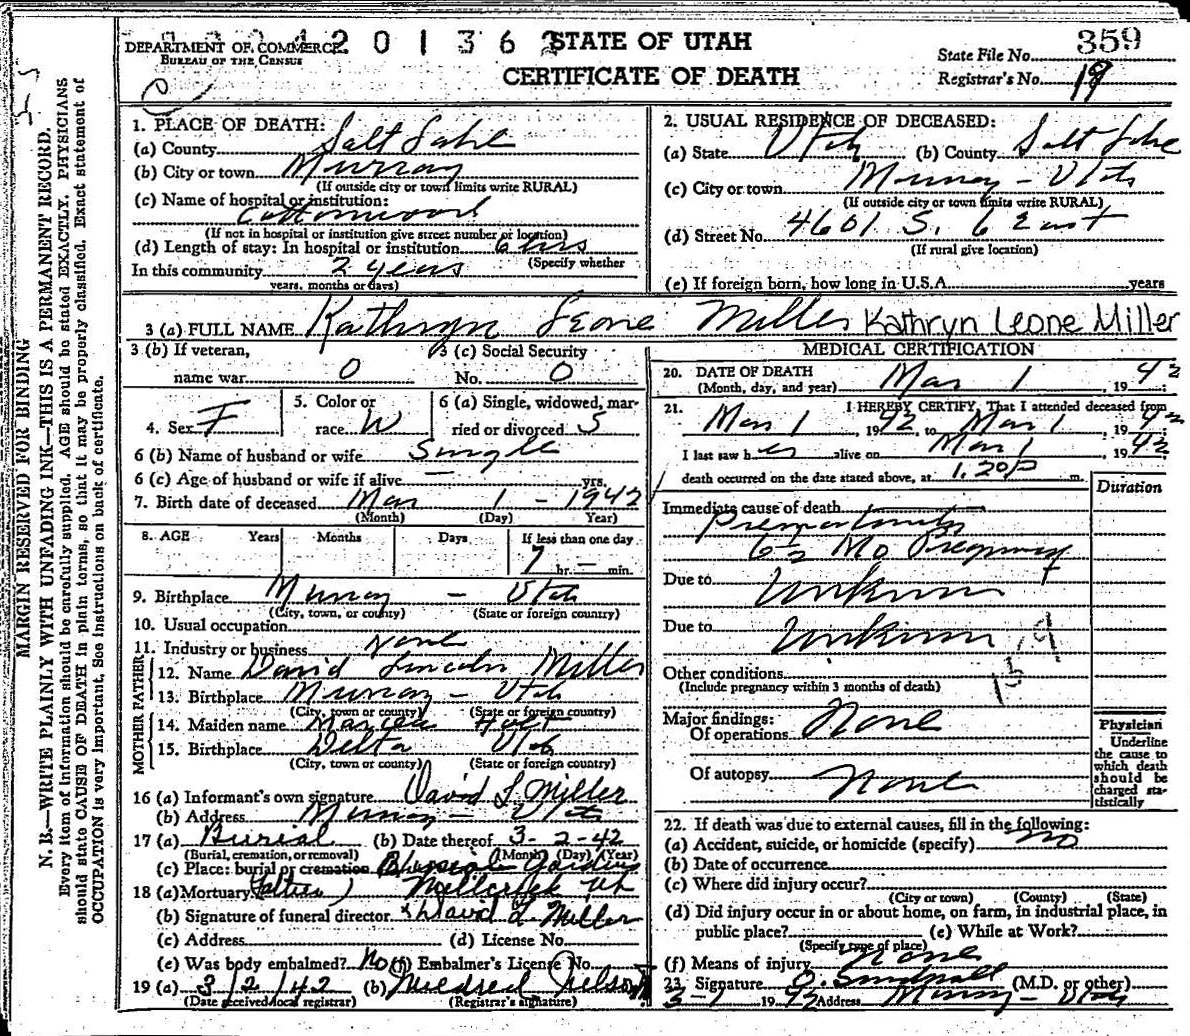 DEPARTMENT OF COMMERCE
BUREAU OF THE CENSUS
4 2 0 1 3 6
STATE OF UTAH
CERTIFICATE OF DEATH
State File No. 359
Registrar's No. 19
MARGIN RESERVED FOR BINDING
N. B.—WRITE PLAINLY WITH UNFADING INK—THIS IS A PERMANENT RECORD.
Every item of information should be carefully supplied. AGE should be stated EXACTLY. PHYSICIANS
should state CAUSE OF DEATH in plain terms, so that it may be properly classified. Exact statement of
OCCUPATION is very important. See instructions on back of certificate.
1. PLACE OF DEATH:
(a) County Salt Lake
(b) City or town Murray
(If outside city or town limits write RURAL)
(c) Name of hospital or institution:
Cottonwood
(If not in hospital or institution give street number or location)
(d) Length of stay: In hospital or institution 6 hrs
(Specify whether
In this community 2 years
years, months or days)
2. USUAL RESIDENCE OF DECEASED:
(a) State Utah (b) County Salt Lake
(c) City or town Murray - Utah
(If outside city or town limits write RURAL)
(d) Street No. 4601 S. 6 East
(If rural give location)
(e) If foreign born, how long in U.S.A. years
3 (a) FULL NAME Kathryn Leone Miller Kathryn Leone Miller
3 (b) If veteran,
name war 0
3 (c) Social Security
No. 0
4. Sex F
5. Color or
race W
6 (a) Single, widowed, mar-
ried or divorced S
6 (b) Name of husband or wife Single
6 (c) Age of husband or wife if alive — yrs.
7. Birth date of deceased Mar 1 - 1942
(Month) (Day) Year)
8. AGE Years Months Days If less than one day
7 hr. — min.
9. Birthplace Murray - Utah
(City, town, or county) (State or foreign country)
10. Usual occupation
11. Industry or business None
FATHER
12. Name David Lincoln Miller
13. Birthplace Murray - Utah
(City, town or county) (State or foreign country)
MOTHER
14. Maiden name Holt
15. Birthplace Delta Utah
(City, town or county) (State or foreign country)
16 (a) Informant's own signature David L Miller
(b) Address Murray - Utah
17 (a) Burial (b) Date thereof 3-2-42
(Burial, cremation, or removal) (Month) (Day) (Year)
(c) Place: burial or cremation Gardens
18 (a) Mortuary (Father) Millcreek Ut
(b) Signature of funeral director x David L Miller
(c) Address (d) License No.
(e) Was body embalmed? No (f) Embalmer's License No.
19 (a) 3/2/42 (b) Mildred Nelson
(Date received local registrar) (Registrar's signature)
MEDICAL CERTIFICATION
20. DATE OF DEATH
(Month, day, and year) Mar 1, 1942
21. I HEREBY CERTIFY, That I attended deceased from
Mar 1 1942, to Mar 1, 1942
I last saw her alive on Mar 1, 1942
death occurred on the date stated above, at 1.20 P m.
Duration
Immediate cause of death
Prematurity
6½ Mo Pregnancy
Due to Unknown
Due to Unknown
159
Other conditions
(Include pregnancy within 3 months of death)
Major findings:
Of operations None
Of autopsy None
Physician
Underline
the cause to
which death
should be
charged sta-
tistically
22. If death was due to external causes, fill in the following:
(a) Accident, suicide, or homicide (specify) no
(b) Date of occurrence
(c) Where did injury occur?
(City or town) (County) (State)
(d) Did injury occur in or about home, on farm, in industrial place, in
public place? (e) While at Work?
(Specify type of place)
(f) Means of injury None
23. Signature (M.D. or other)
3-1 1942 Address Murray - Utah